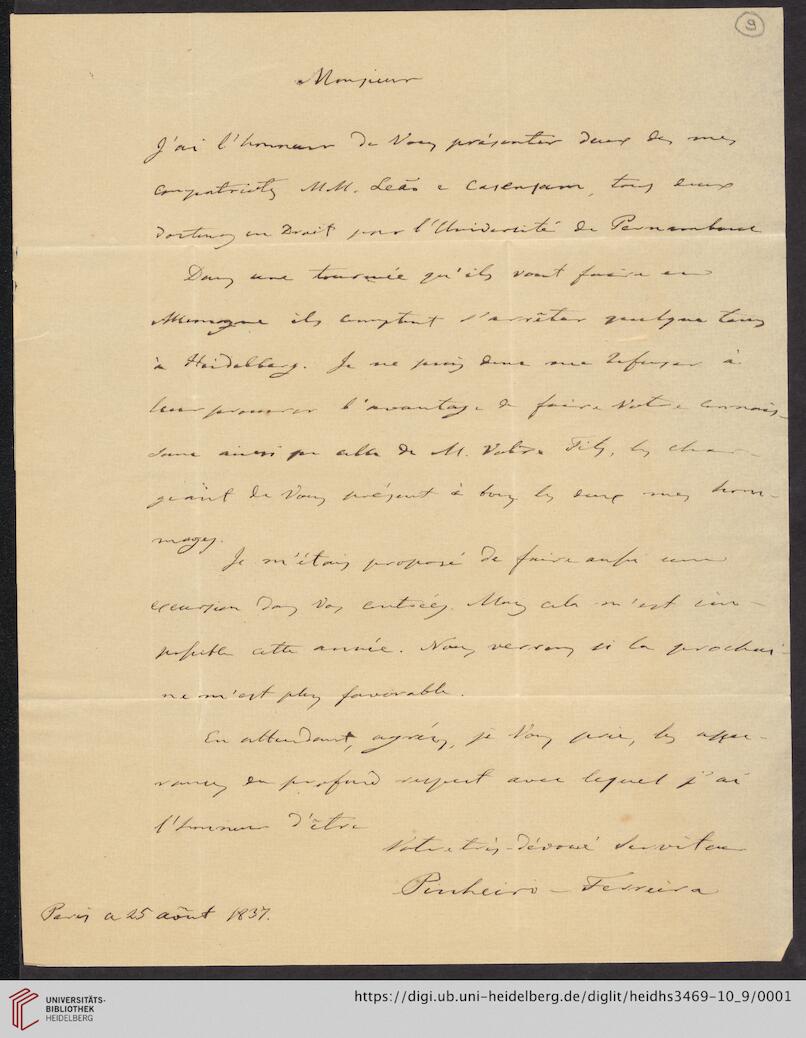 9
Monsieur
J'ai l'honneur de Vous présenter deux des mes
compatriotes MM. Leão e , tous deux
en Droit pour l'Université de Pernambuco
Dans une tournée qu'ils vont faire en
Allemagne ils comptent s'arrêter quelque tems
à Heidelberg. Je ne puis donc me refuser à
leur procurer l'avantage de faire Votre connais-
sance ainsi que celle de M. Votre Fils, les char-
geant de Vous présent à tous les deux mes hom-
mages.
Je m'étais proposé de faire aussi une
excursion dans Vos contrées. Mais cela m'est im-
possible cette année. Nous verrons si la prochai-
ne m'est plus favorable.
En attendant, agréez, je Vous prie, les assu-
rances du profond respect avec lequel j'ai
l'honneur d'être
Votre très-dévoué Serviteur
Pinheiro-Ferreira
Paris a 25 août 1837.
UNIVERSITÄTS-
BIBLIOTHEK
HEIDELBERG
https://digi.ub.uni-heidelberg.de/diglit/heidhs3469-10_9/0001